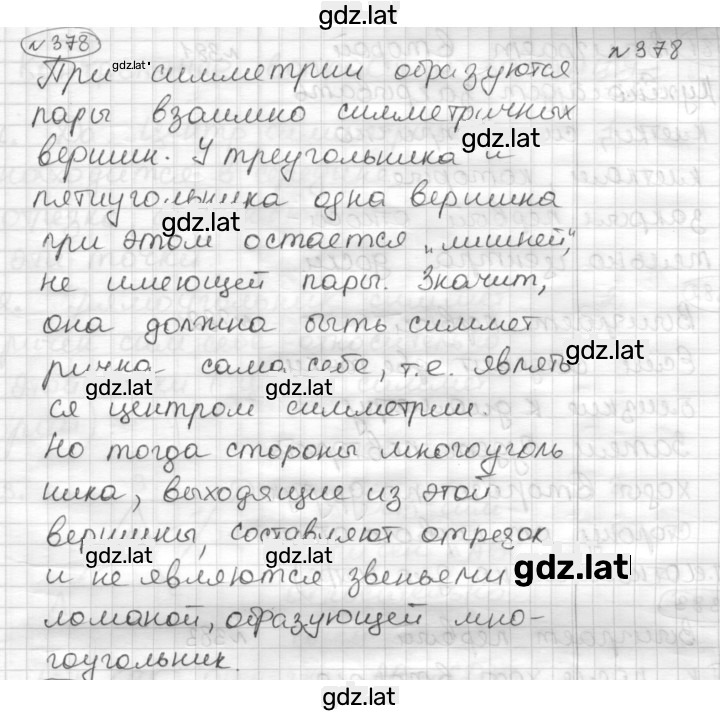 gdz.lat
№378 №378
gdz.lat
При симметрии образуются
пары взаимно симметричных
gdz.lat
вершин. У треугольника и
пятиугольника одна вершина
gdz.lat
при этом остается „лишней,”
не имеющей пары. Значит,
она должна быть симмет
gdz.lat
рична сама себе, т.е. являть
gdz.lat gdz.lat
ся центром симметрии.
Но тогда стороны многоуголь
ника, выходящие из этой
вершины, составляют отрезок
gdz.lat gdz.lat
и не являются звеньями
gdz.lat
ломаной, образующей мно-
гоугольник.
gdz.lat